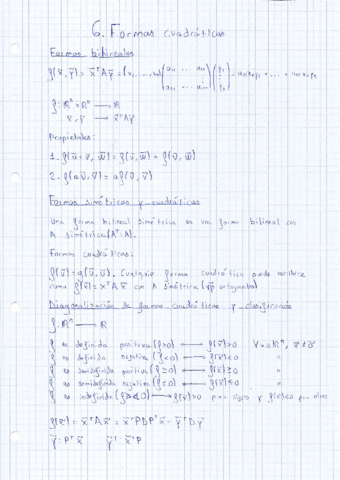 6. Formas cuadráticas
Formas bilineales
f(x̄, ȳ) = x̄ᵀAȳ = (x₁, ..., xₙ) (a₁₁ ... aₙ₁ ... ) (y₁ ... yₙ) = a₁₁x₁y₁ + ... + 
f: ℝⁿ × ℝⁿ ⟶ ℝ
x̄, ȳ ⟶ x̄ᵀAȳ
Propiedades:
1. f(ū+v̄, w̄) = f(ū, w̄) + f(v̄, w̄)
2. f(aū, v̄) = a f(ū, v̄)
Formas simétricas y cuadráticas
Una forma bilineal simétrica es una forma bilineal con
A simétrica (Aᵗ=A).
Formas cuadráticas:
f(ū) = g(ū, ū). Cualquier forma cuadrática puede escribirse
como f(x̄) = x̄ᵀAx̄ con A simétrica ( ortogonales)
Diagonalización de formas cuadráticas y clasificación
f: ℝⁿ ⟶ ℝ
f es definida positiva (f>0) ⟷ f(x̄)>0 ∀x̄∈ℝⁿ, x̄≠0̄
f es definida negativa (f<0) ⟷ f(x̄)<0 "
f es semidefinida positiva (f≥0) ⟷ f(x̄)≥0 "
f es semidefinida negativa (f≤0) ⟷ f(x̄)≤0 "
f es indefinida ⟷ f(x̄)>0 para algún y f(x̄)<0 por otros
f(x̄) = x̄ᵀAx̄ = x̄ᵀPDPᵀx̄ = ȳᵀDȳ
ȳ = Pᵀx̄ ȳᵀ = x̄ᵀP